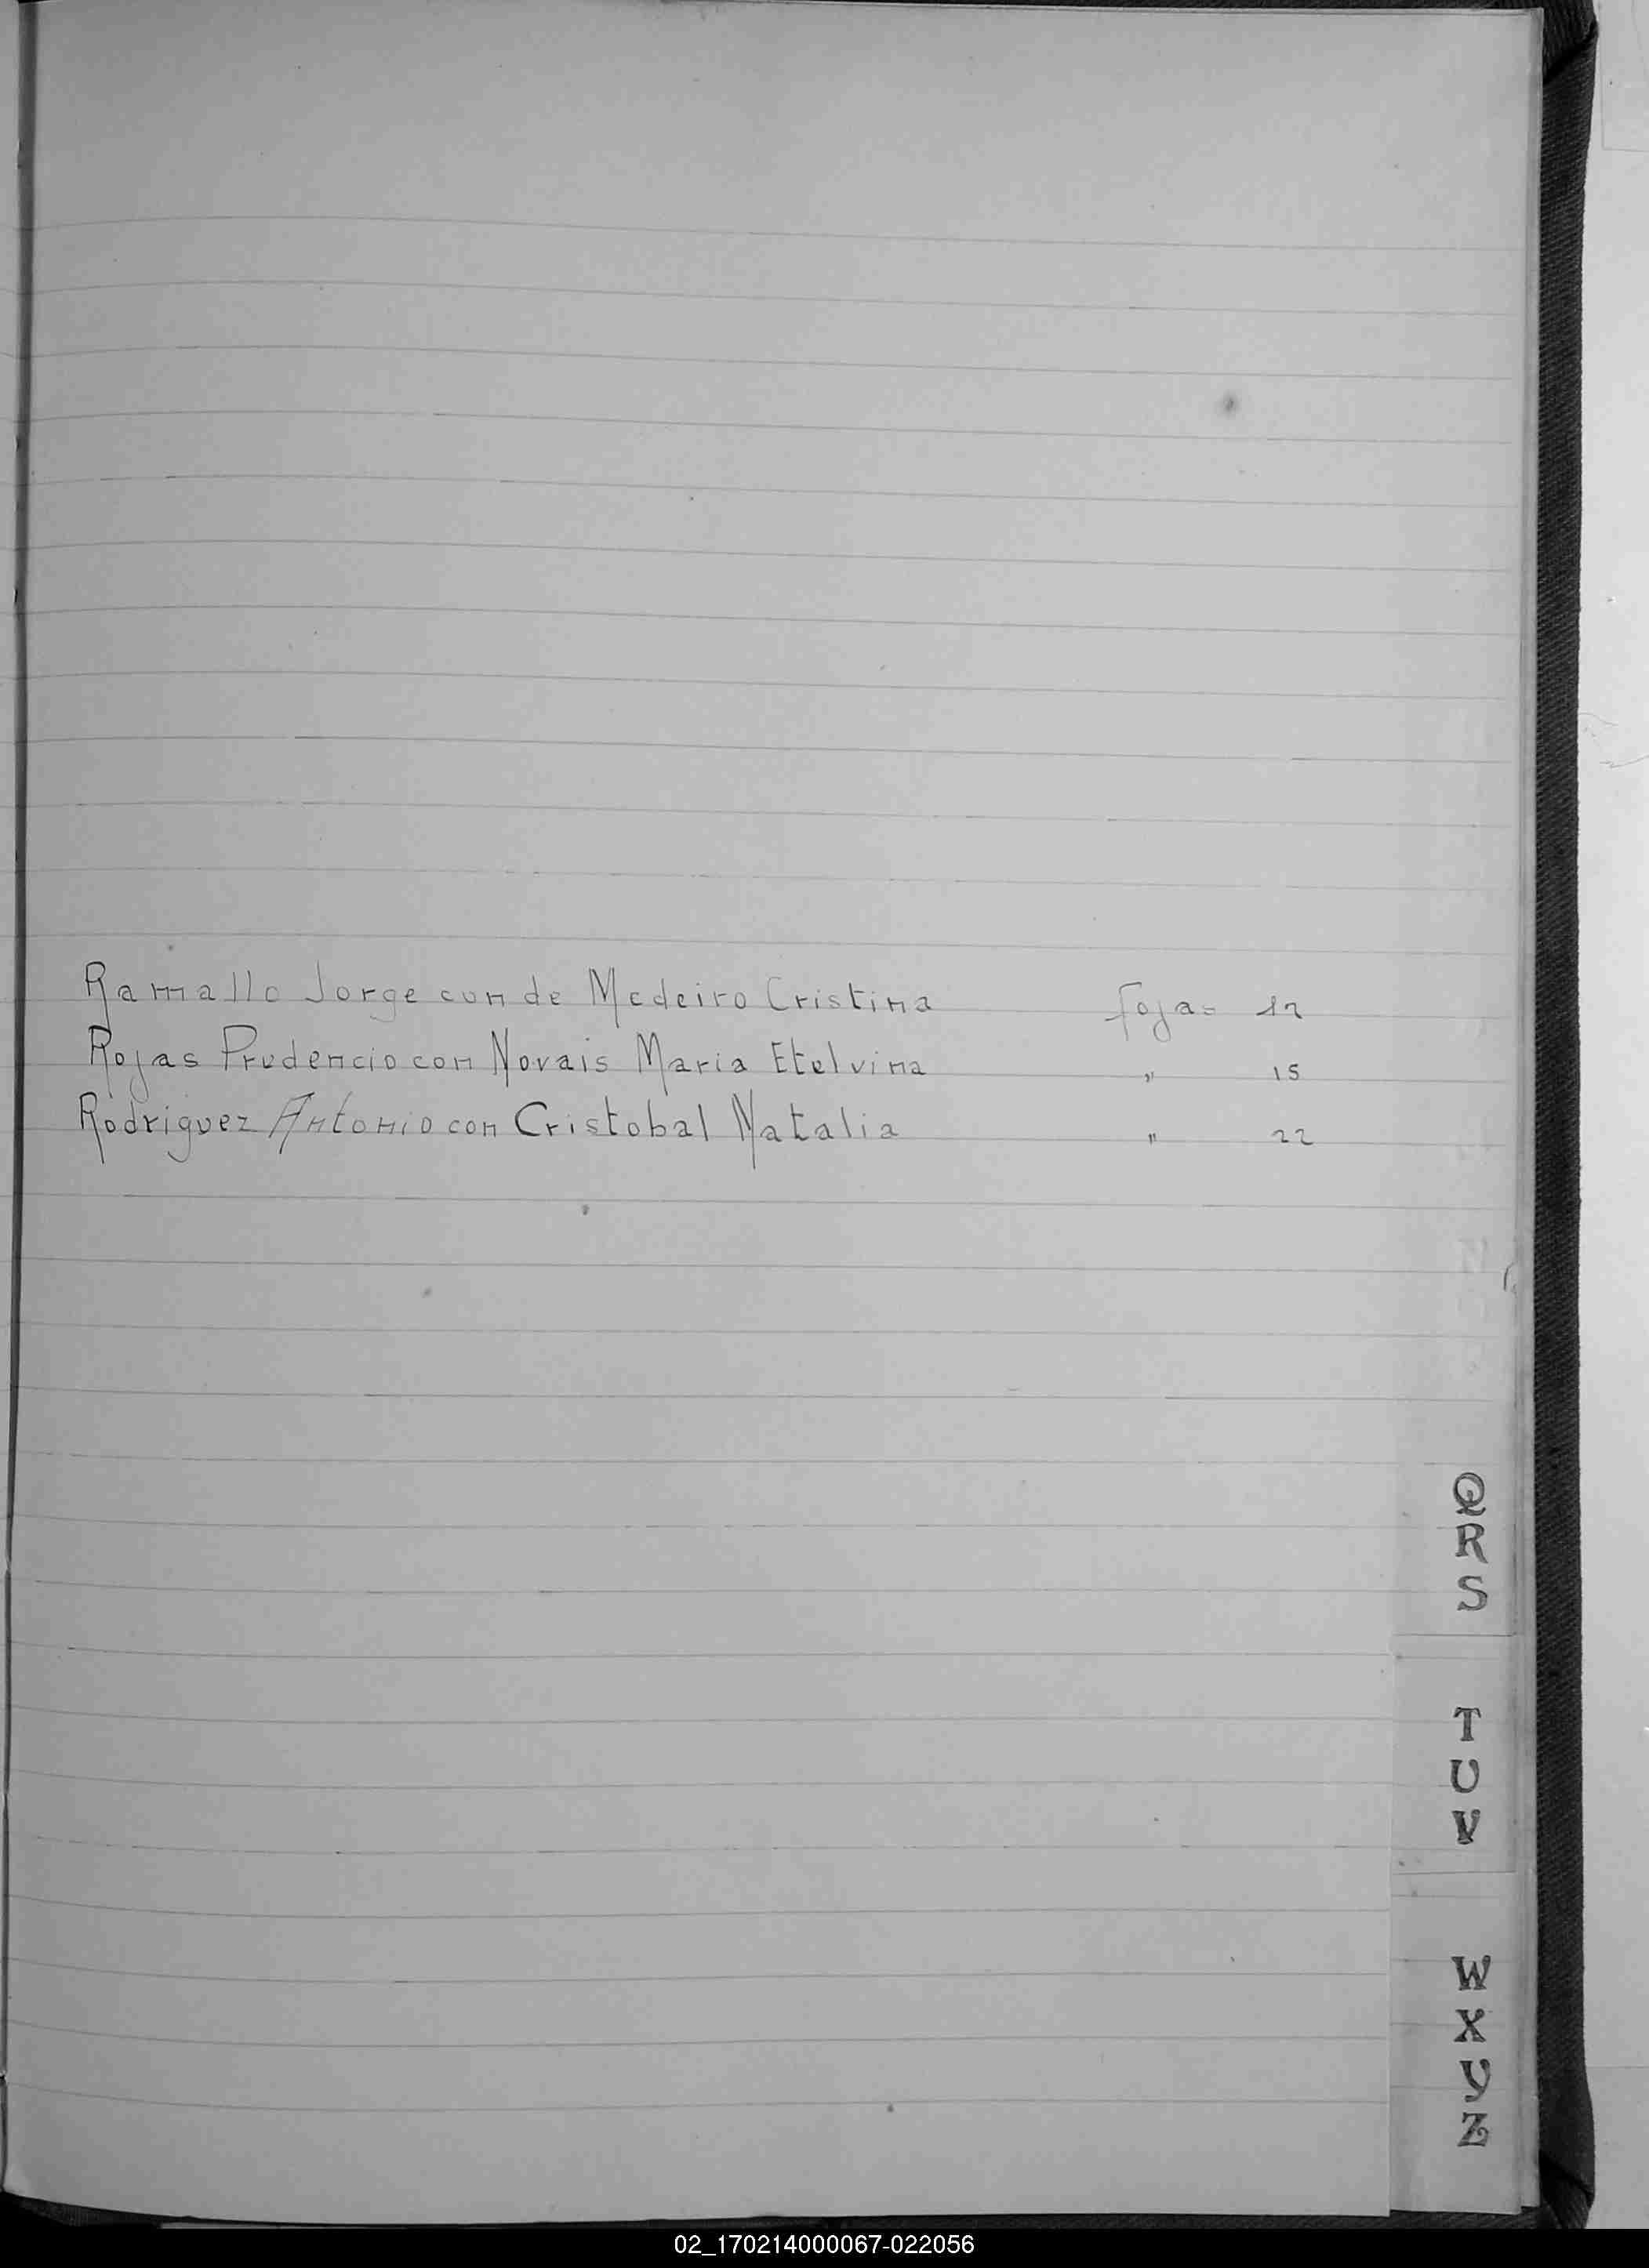 Ramallo Jorge con de Medeiro Cristina fojas 12
Rojas Prudencio con Novais Maria Etelvina " 15
Rodriguez Antonio con Cristobal Natalia " 22
Q
R
S
T
U
V
W
X
Y
Z
02_170214000067-022056